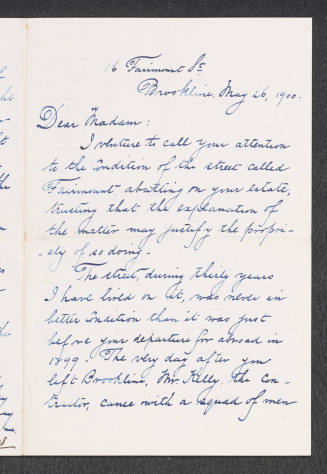 16 Fairmount St.
Brookline, May 26, 1900.
Dear Madam:
I venture to call your attention
to the condition of the street called
Fairmount abutting on your estate,
trusting that the explanation of
the matter may justify the propri-
-ety of so doing.
The street, during thirty years
I have lived on it, was never in
better condition than it was just
before your departure for abroad in
1899. The very day after you
left Brookline, Mr. Kelly, the con-
tractor, came with a squad of men